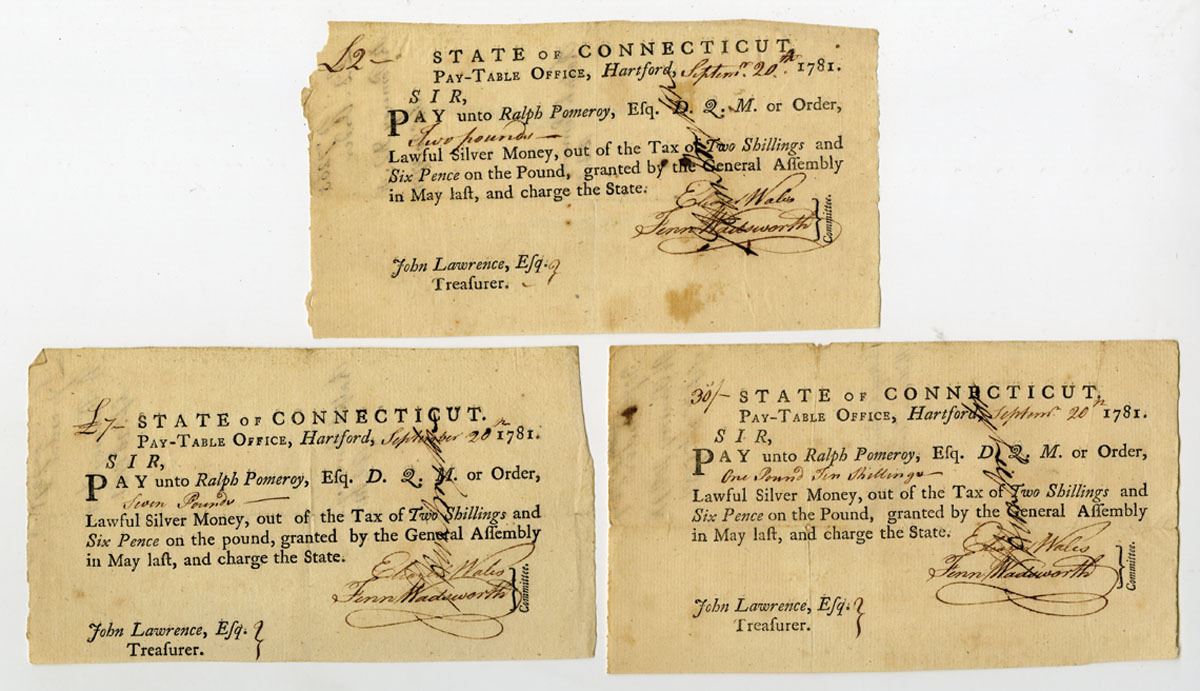 £2-
STATE OF CONNECTICUT,
PAY-TABLE OFFICE, Hartford, Septemr. 20th 1781.
SIR,
PAY unto Ralph Pomeroy, Esq. D. Q. M. or Order,
Two pounds—
Lawful Silver Money, out of the Tax of Two Shillings and
Six Pence on the Pound, granted by the General Aſſembly
in May laſt, and charge the State.
Eleazr Wales
Fenn Wadsworth
Committee.
John Lawrence, Eſq.
Treaſurer.
£7-
STATE OF CONNECTICUT.
PAY-TABLE OFFICE, Hartford, September 20th 1781.
SIR,
PAY unto Ralph Pomeroy, Esq. D. Q. M. or Order,
Seven Pounds—
Lawful Silver Money, out of the Tax of Two Shillings and
Six Pence on the pound, granted by the General Aſſembly
in May laſt, and charge the State.
Eleazr Wales
Fenn Wadsworth
Committee.
John Lawrence, Eſq.
Treaſurer.
30/-
STATE OF CONNECTICUT,
PAY-TABLE OFFICE, Hartford, Septemr. 20th 1781.
SIR,
PAY unto Ralph Pomeroy, Esq. D. Q. M. or Order,
One Pound Ten Shillings—
Lawful Silver Money, out of the Tax of Two Shillings and
Six Pence on the Pound, granted by the General Aſſembly
in May laſt, and charge the State.
Eleazr Wales
Fenn Wadsworth
Committee.
John Lawrence, Eſq.
Treaſurer.